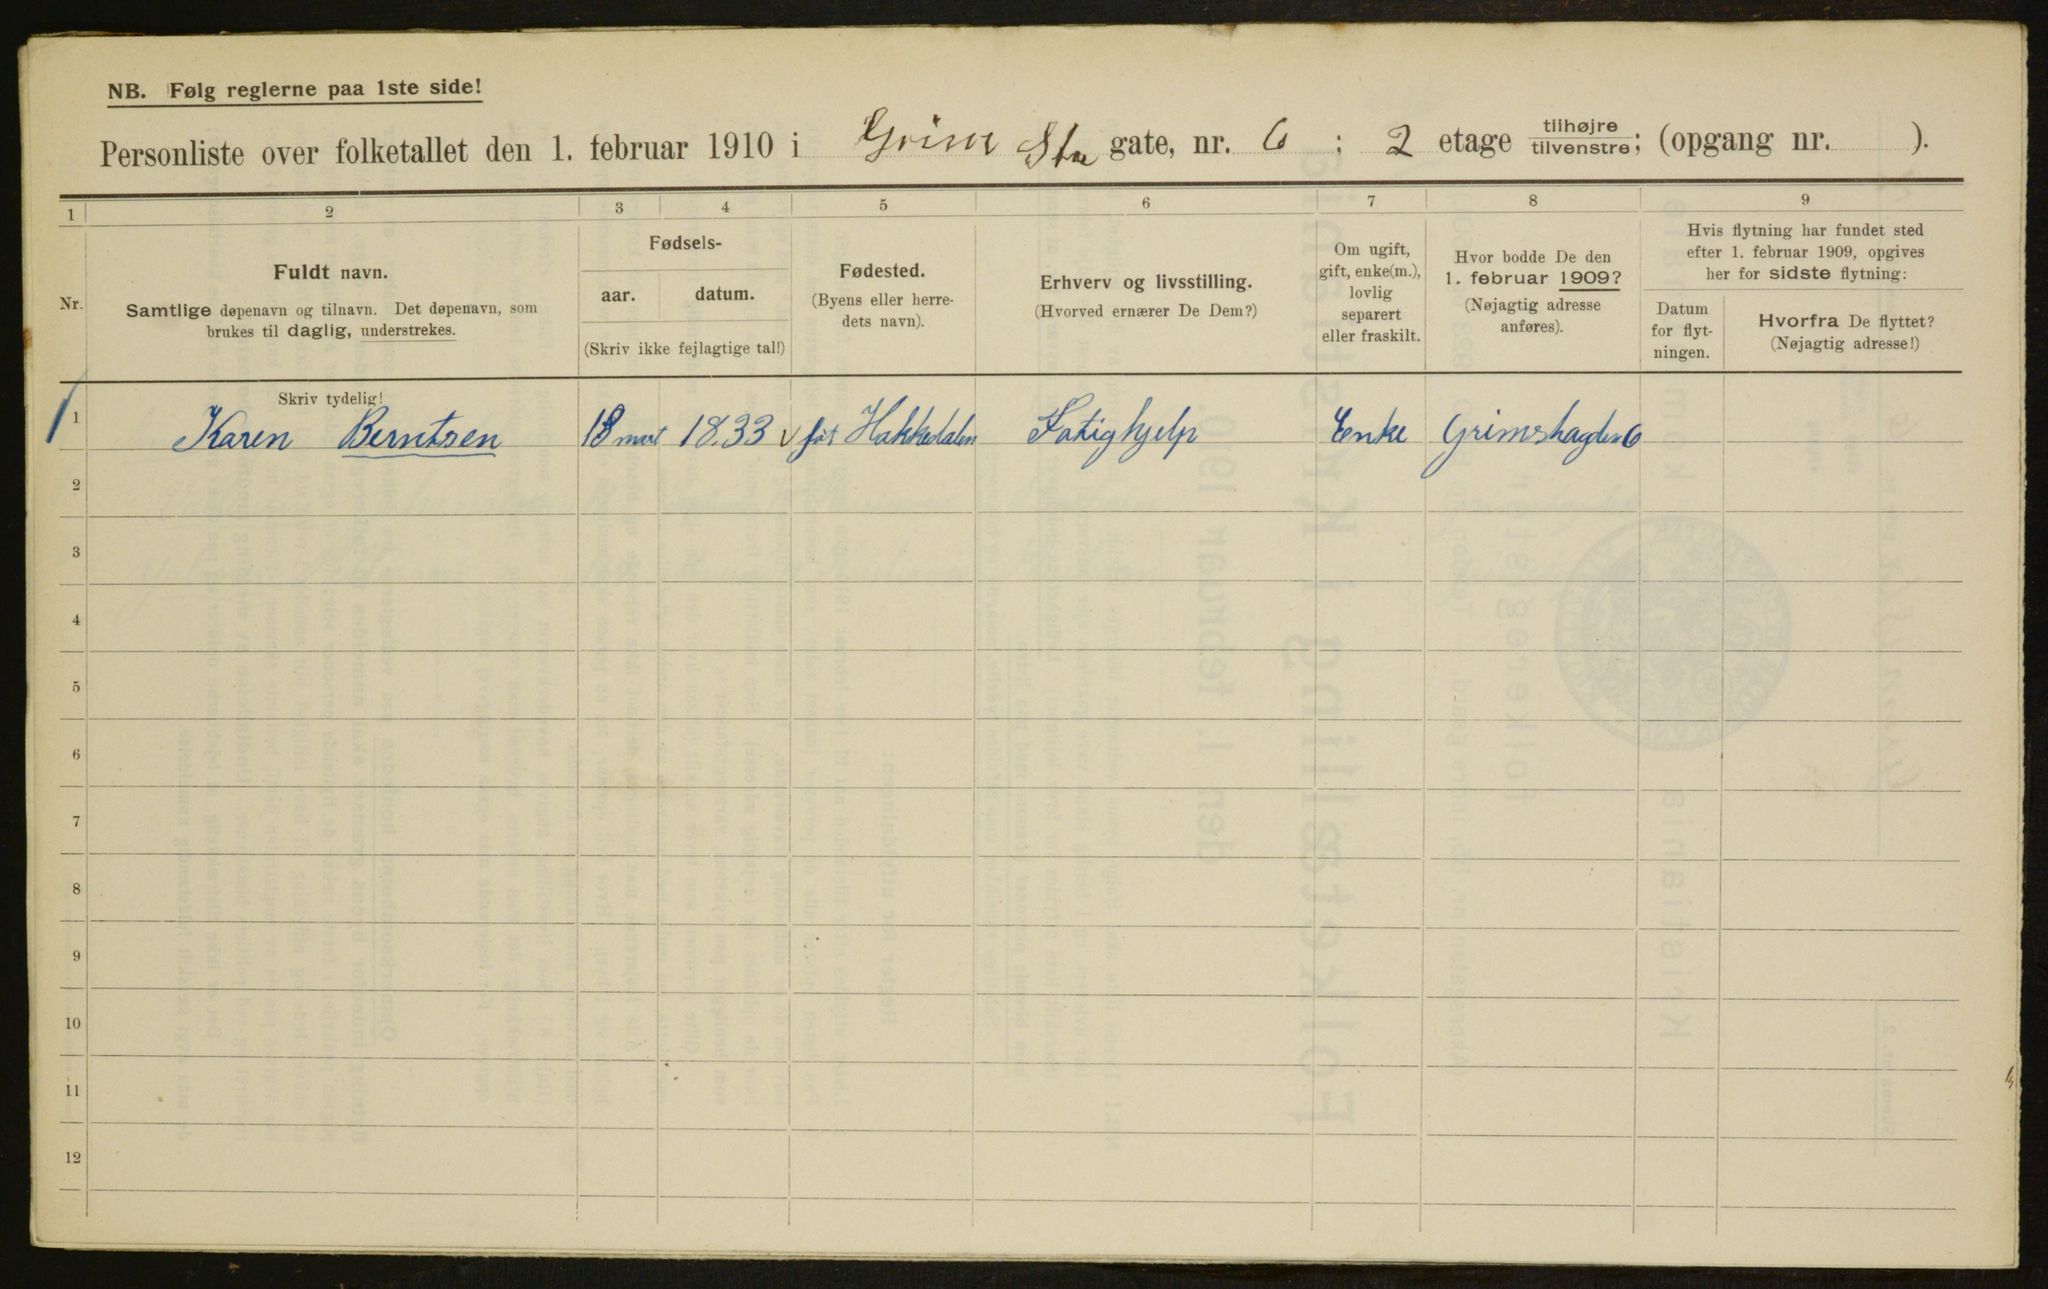 NB. Følg reglerne paa 1ste side!
Personliste over folketallet den 1. februar 1910 i Grims Str gate, nr. 6 ; 2 etage tilhøjre tilvenstre; (opgang nr. ).
1 2 3 4 5 6 7 8 9
Nr.
Fuldt navn.
Samtlige døpenavn og tilnavn. Det døpenavn, som
brukes til daglig, understrekes.
Fødsels-
aar. datum.
(Skriv ikke fejlagtige tal!)
Fødested.
(Byens eller herre-
dets navn).
Erhverv og livsstilling.
(Hvorved ernærer De Dem?)
Om ugift,
gift, enke(m.),
lovlig
separert
eller fraskilt.
Hvor bodde De den
1. februar 1909?
(Nøjagtig adresse
anføres).
Hvis flytning har fundet sted
efter 1. februar 1909, opgives
her for sidste flytning:
Datum
for flyt-
ningen.
Hvorfra De flyttet?
(Nøjagtig adresse!)
Skriv tydelig!
1 Karen Berntsen 18 mart 1833 føt Hakkedalen Fatighjelp Enke Grimshagden 6
2
3
4
5
6
7
8
9
10
11
12